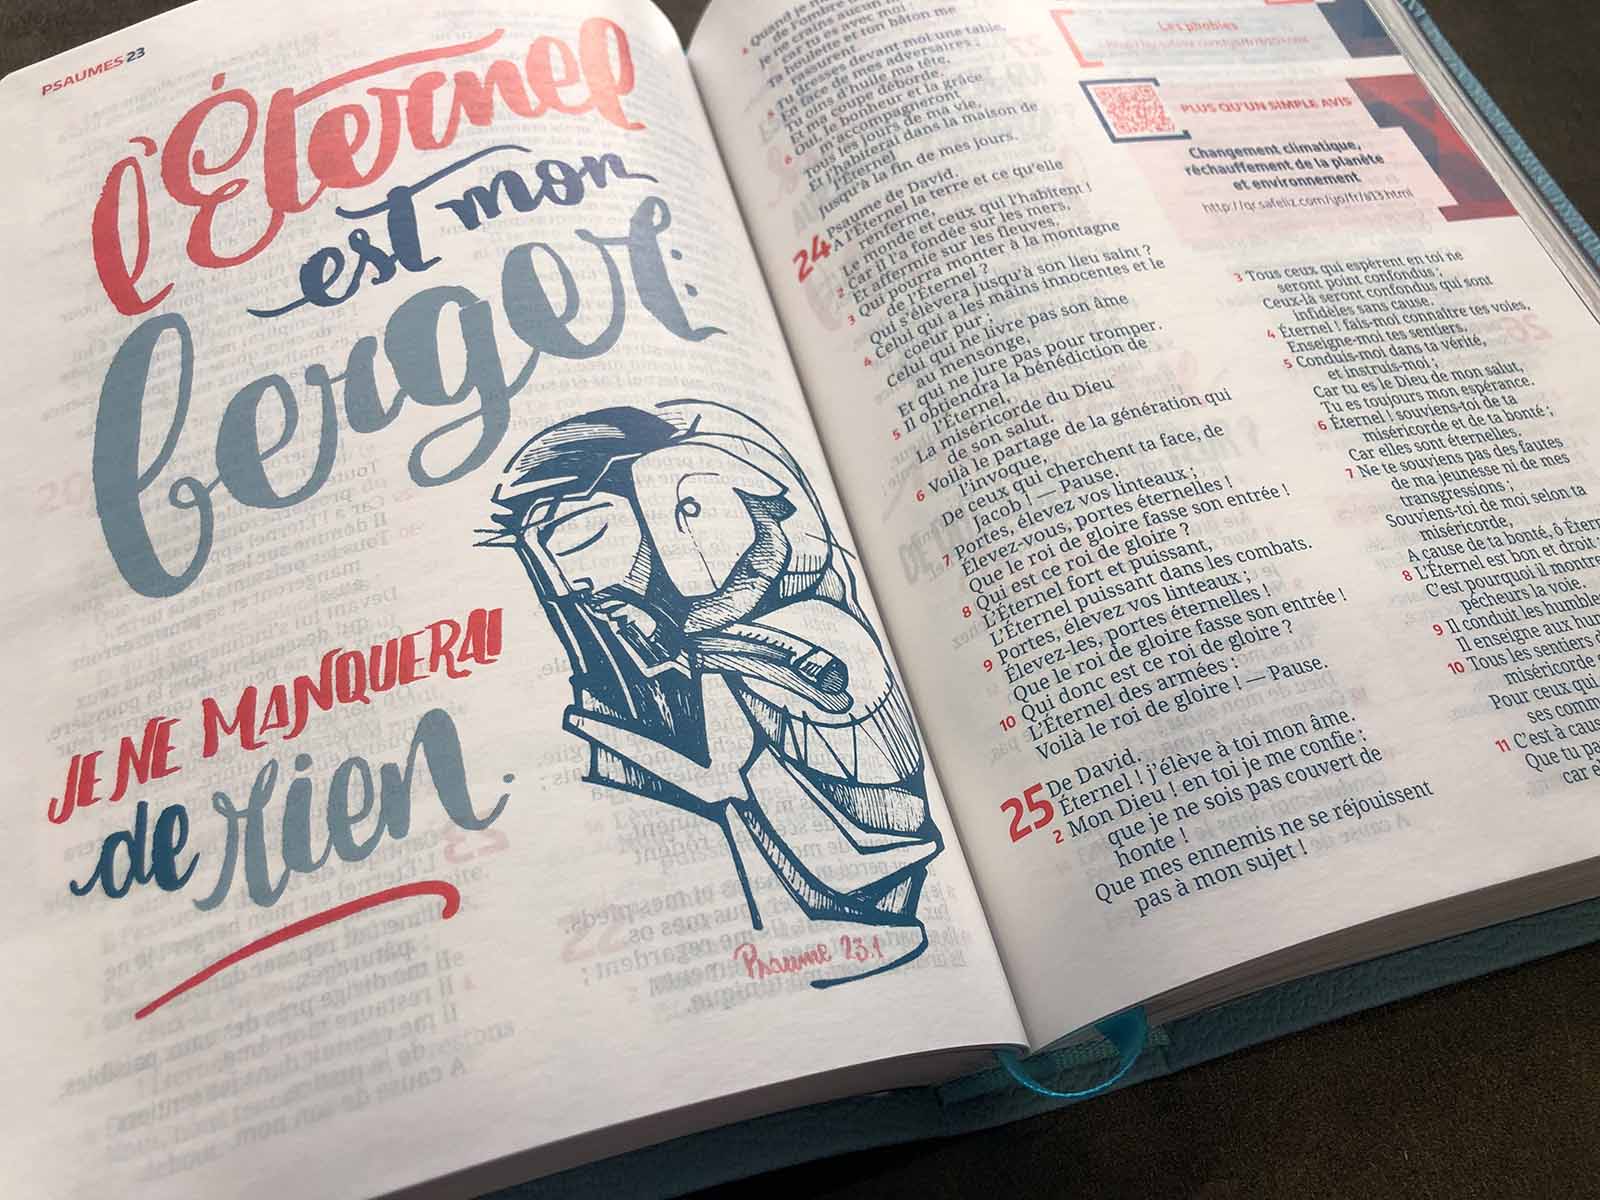 PSAUMES 23
l'Éternel
est mon
berger:
JE NE MANQUERAI
de rien.
Psaume 23.1
4 Quand je
de l'ombre
Je ne crains aucun
car tu es avec moi :
Ta houlette et ton bâton me
rassurent.
5 Tu dresses devant moi une table,
En face de mes adversaires ;
Tu oins d'huile ma tête,
Et ma coupe déborde.
6 Oui, le bonheur et la grâce
m'accompagneront
Tous les jours de ma vie,
Et j'habiterai dans la maison de
l'Éternel
Jusqu'à la fin de mes jours.
24 Psaume de David.
A l'Éternel la terre et ce qu'elle
renferme,
Le monde et ceux qui l'habitent !
2 Car il l'a fondée sur les mers,
Et affermie sur les fleuves.
3 Qui pourra monter à la montagne
de l'Éternel ?
Qui s'élèvera jusqu'à son lieu saint ?
4 Celui qui a les mains innocentes et le
coeur pur ;
Celui qui ne livre pas son âme
au mensonge,
Et qui ne jure pas pour tromper.
5 Il obtiendra la bénédiction de
l'Éternel,
La miséricorde du Dieu
de son salut.
6 Voilà le partage de la génération qui
l'invoque,
De ceux qui cherchent ta face, de
Jacob ! — Pause.
7 Portes, élevez vos linteaux ;
Élevez-vous, portes éternelles !
Que le roi de gloire fasse son entrée !
8 Qui est ce roi de gloire ?
L'Éternel fort et puissant,
L'Éternel puissant dans les combats.
9 Portes, élevez vos linteaux ;
Élevez-les, portes éternelles !
Que le roi de gloire fasse son entrée !
10 Qui donc est ce roi de gloire ?
L'Éternel des armées :
Voilà le roi de gloire ! — Pause.
25 De David.
Éternel ! j'élève à toi mon âme.
2 Mon Dieu ! en toi je me confie :
que je ne sois pas couvert de
honte !
Que mes ennemis ne se réjouissent
pas à mon sujet !
Les phobies
PLUS QU'UN SIMPLE AVIS
Changement climatique,
réchauffement de la planète
et environnement
http://qr.safeliz.com/yo/fr/a13.html
3 Tous ceux qui espèrent en toi ne
seront point confondus ;
Ceux-là seront confondus qui sont
infidèles sans cause.
4 Éternel ! fais-moi connaître tes voies,
Enseigne-moi tes sentiers.
5 Conduis-moi dans ta vérité,
et instruis-moi ;
Car tu es le Dieu de mon salut,
Tu es toujours mon espérance.
6 Éternel ! souviens-toi de ta
miséricorde et de ta bonté ;
Car elles sont éternelles.
7 Ne te souviens pas des fautes
de ma jeunesse ni de mes
transgressions ;
Souviens-toi de moi selon ta
miséricorde,
A cause de ta bonté, ô Étern
8 L'Éternel est bon et droit
C'est pourquoi il montre
pécheurs la voie.
9 Il conduit les humble
Il enseigne aux hum
10 Tous les sentiers d
miséricorde
Pour ceux qui
ses comm
11 C'est à caus
Que tu pa
car el